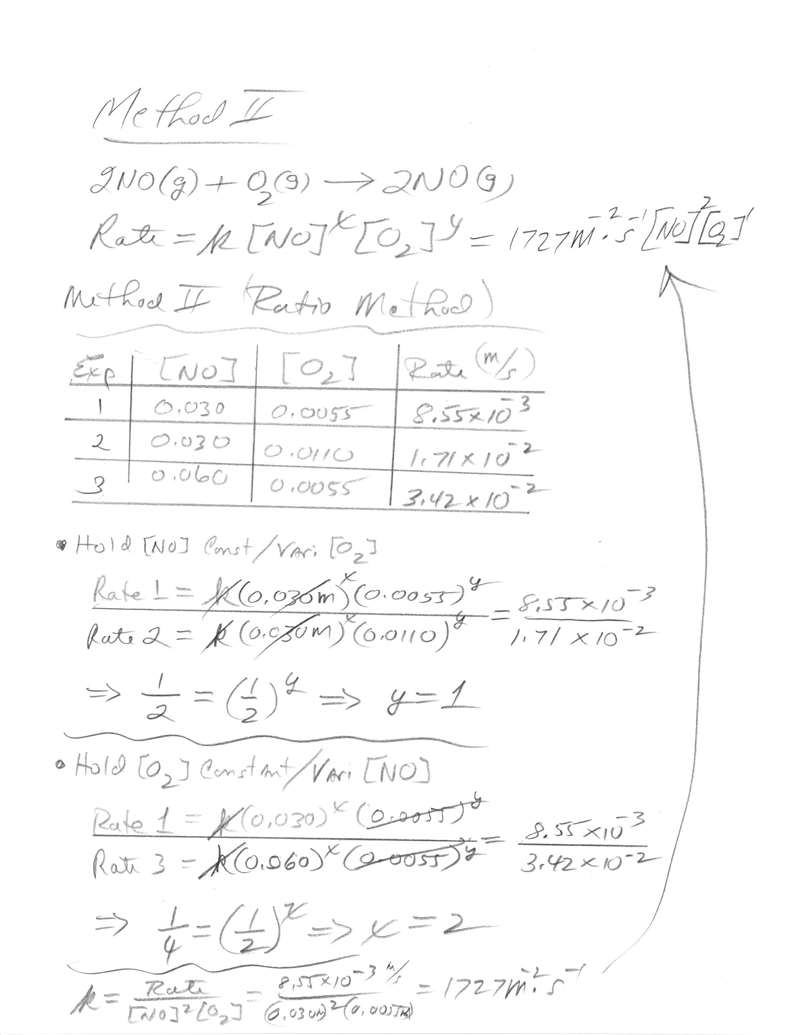 Method II
2NO(g) + O₂(g) → 2NO(g)
Rate = k [NO]ˣ [O₂]ʸ = 1727 m⁻²·s⁻¹ [NO]² [O₂]¹
Method II (Ratio Method)
Exp [NO] [O₂] Rate (m/s)
1 0.030 0.0055 8.55×10⁻³
2 0.030 0.0110 1.71×10⁻²
3 0.060 0.0055 3.42×10⁻²
• Hold [NO] Const/Vari. [O₂]
Rate 1 = k(0.030m)ˣ(0.0055)ʸ = 8.55×10⁻³
Rate 2 = k(0.030m)ˣ(0.0110)ʸ 1.71×10⁻²
⇒ 1/2 = (1/2)ʸ ⇒ y = 1
• Hold [O₂] Constant/Vari [NO]
Rate 1 = k(0.030)ˣ(0.0055)ʸ = 8.55×10⁻³
Rate 3 = k(0.060)ˣ(0.0055)ʸ 3.42×10⁻²
⇒ 1/4 = (1/2)ˣ ⇒ x = 2
k = Rate/[NO]²[O₂] = 8.55×10⁻³ m/s/(0.030m)²(0.0055m) = 1727 m⁻²·s⁻¹